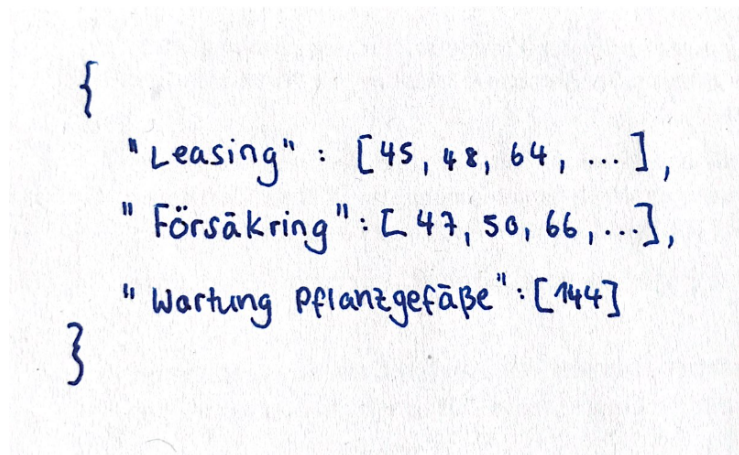 {
"Leasing": [45, 48, 64, ...],
"Försäkring": [47, 50, 66, ...],
"Wartung Pflanzgefäße": [144]
}